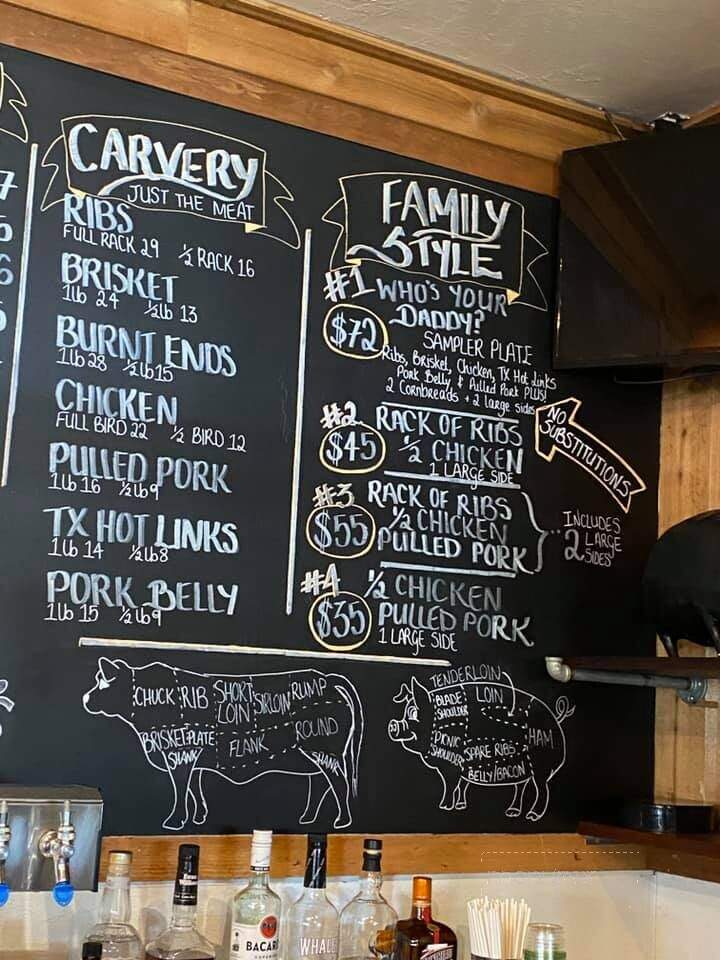 CARVERY
JUST THE MEAT
RIBS
FULL RACK 29 ½ RACK 16
BRISKET
1lb 24 ½lb 13
BURNT ENDS
1lb 28 ½lb 15
CHICKEN
FULL BIRD 22 ½ BIRD 12
PULLED PORK
1lb 16 ½lb 9
TX HOT LINKS
1lb 14 ½lb 8
PORK BELLY
1lb 15 ½lb 9
FAMILY
STYLE
#1 WHO'S YOUR
DADDY?
$72
SAMPLER PLATE
Ribs, Brisket, Chicken, TX Hot Links
Pork Belly & Pulled Pork PLUS!
2 Cornbreads + 2 large sides
NO
SUBSTITUTIONS
#2 RACK OF RIBS
$45 ½ CHICKEN
1 LARGE SIDE
#3 RACK OF RIBS
$55 ½ CHICKEN
PULLED PORK
INCLUDES
2 LARGE
SIDES
#4 ½ CHICKEN
$35 PULLED PORK
1 LARGE SIDE
CHUCK RIB SHORT LOIN SIRLOIN RUMP
BRISKET PLATE FLANK ROUND
SHANK SHANK
TENDERLOIN
BLADE SHOULDER LOIN
PICNIC SHOULDER SPARE RIBS HAM
BELLY/BACON
BACARDI
WHALE